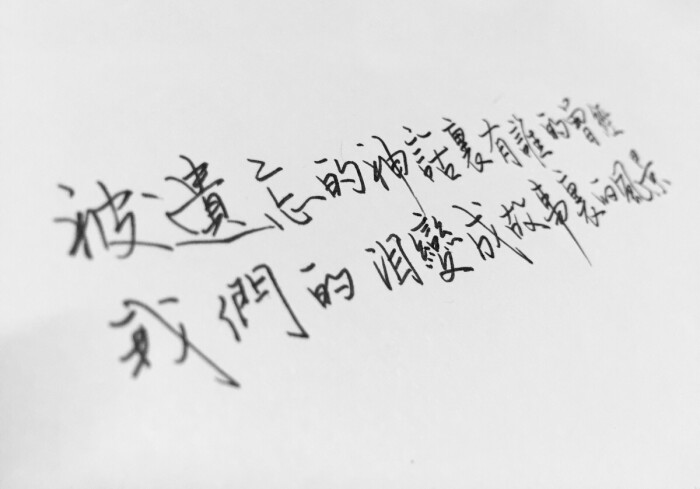 被遺忘的神話裏有誰的冒險
我們的泪變成故事裏的風景